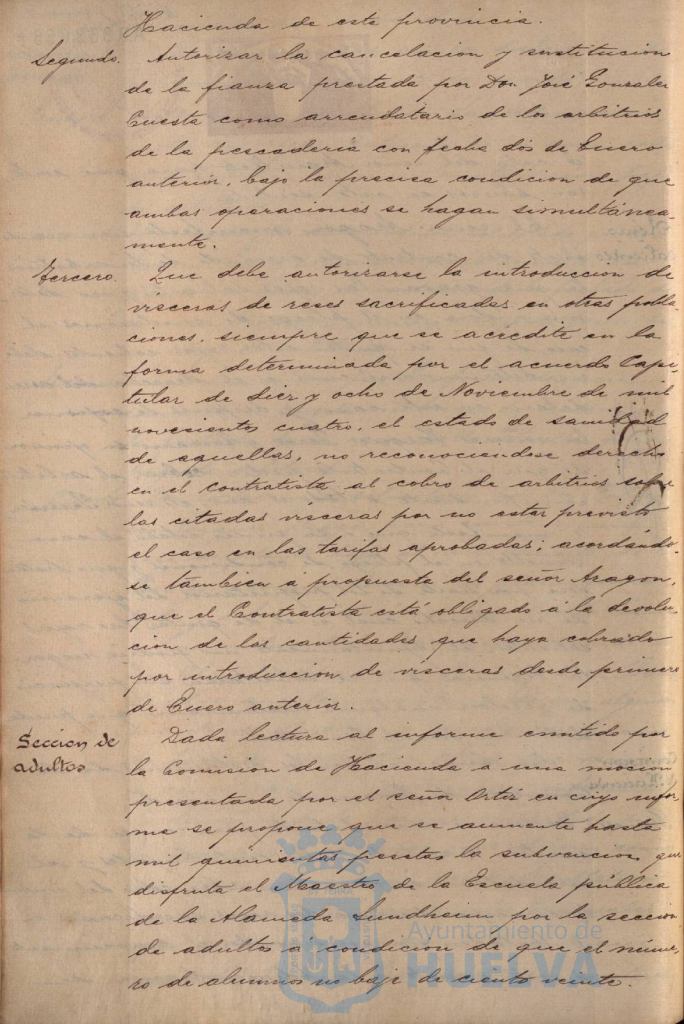 Hacienda de este provincia.
Segundo. Autorizar la cancelacion y sustitucion
de la fianza prestada por Don José Gonzalez
Cuesta como arrendatario de los arbitrios
de la pescaderia con fecha dós de Enero
anterior, bajo la precisa condicion de que
ambas operaciones se hagan simultánea-
mente.
Tercero. Que debe autorizarse la introduccion de
visceras de reses sacrificadas en otras pobla-
ciones, siempre que se acredite en la
forma determinada por el acuerdo Capi-
tular de diez y ocho de Noviembre de mil
novecientos cuatro, el estado de sanidad
de aquellas, no reconociendose derecho
en el contratista al cobro de arbitrios sobre
las citadas visceras por no estar previsto
el caso en las tarifas aprobadas; acordándo-
se tambien á propuesta del señor Aragon,
que el Contratista está obligado á la devolu-
cion de las cantidades que haya cobrado
por introduccion de visceras desde primero
de Enero anterior.
Seccion de
adultos
Dada lectura al informe emitido por
la Comision de Hacienda á una mocion
presentada por el señor Ortiz en cuyo infor-
me se propone que se aumente hasta
mil quinientas pesetas la subvencion que
disfruta el Maestro de la Escuela pública
de la Alameda Sundheim por la seccion
de adultos á condicion de que el núme-
ro de alumnos no baje de ciento veinte.
Ayuntamiento de
HUELVA